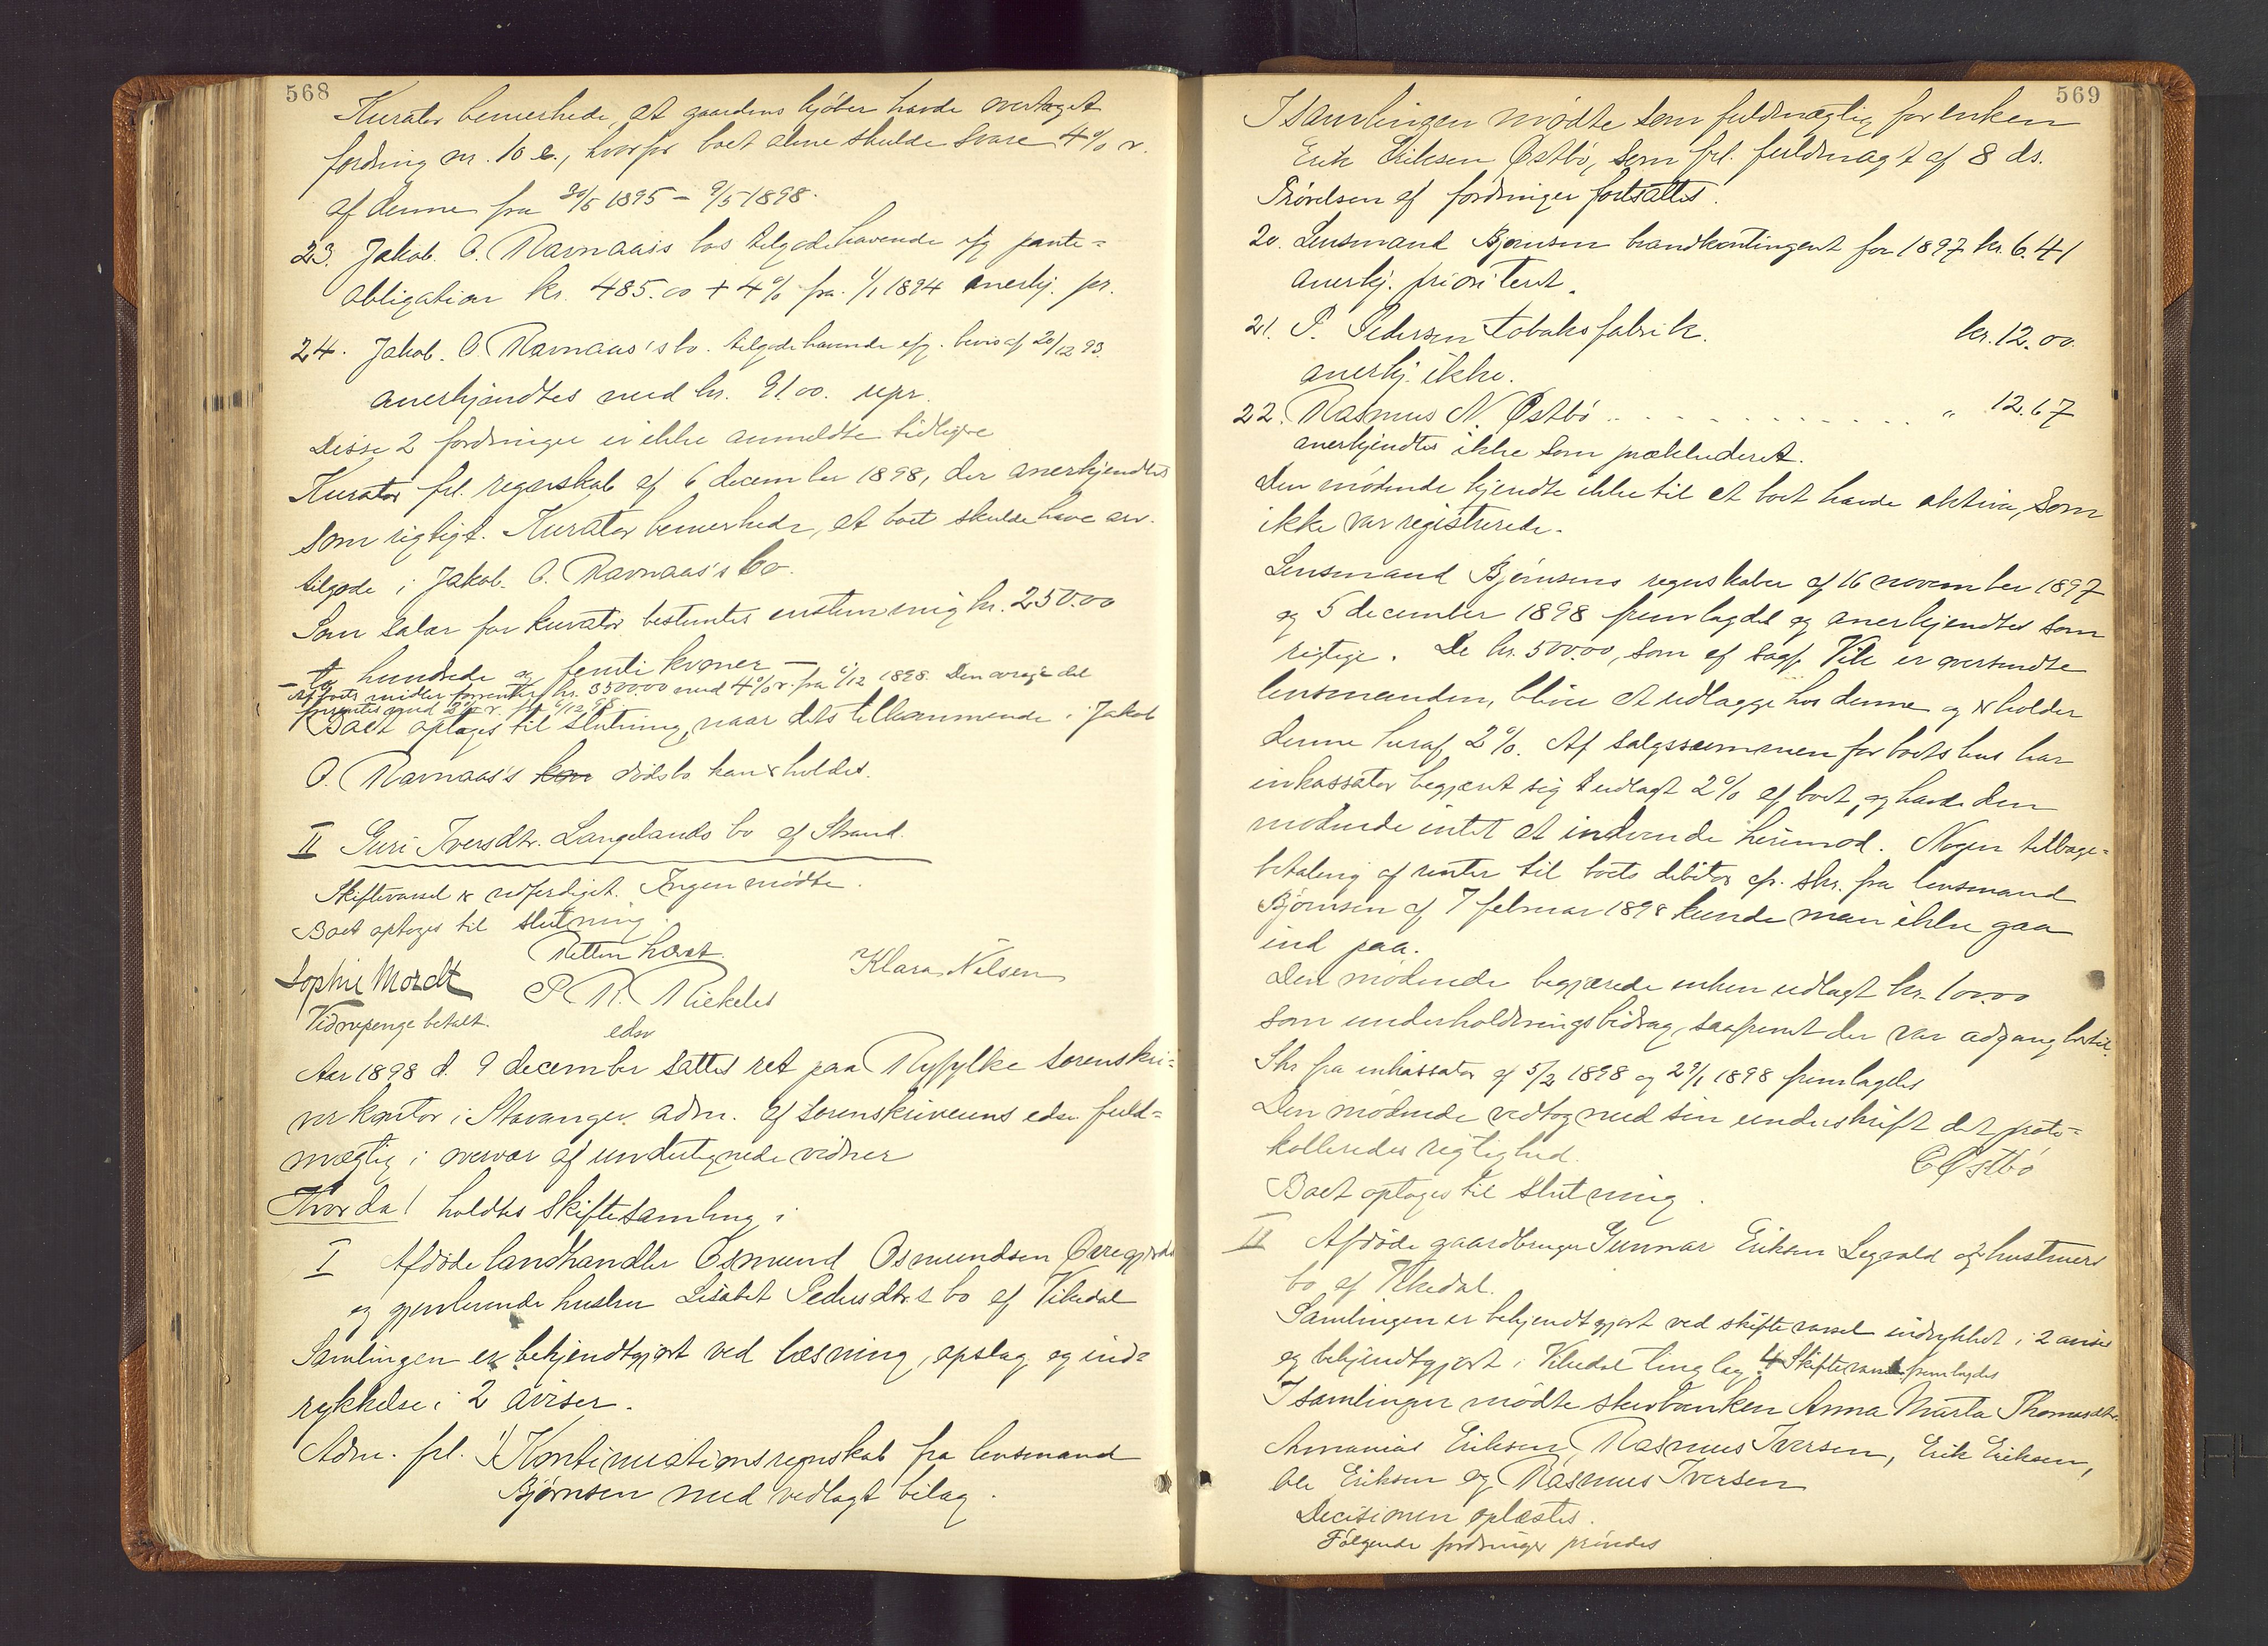 568
Kurator bemerkede, at gaardens kjöber havde overtaget
fordring nr. 10 e., hvorfor boet alene skulde svare 4 % r.
af denne fra 30/5 1895 – 9/5 1898.
23. Jakob O. Ravnaas's bos tilgodehavende ifg pante-
obligation kr. 485.00 + 4% fra 1/1 1894 anerkj. pr.
24. Jakob O. Ravnaas's bo. tilgodehavende efg. bevis af 20/12 93.
anerkjendtes med kr. 91.00. upr.
Disse 2 fordringer er ikke anmeldte tidligere
Kurator frl. regnskab af 6 december 1898, der anerkjendtes
som rigtigt. Kurator bemerkede, at boet skulde have arv
tilgode i Jakob O. Ravnaas's bo.
Som salær for kurator bestemtes enstemmig kr. 250.00
– to hundrede og femti kroner –
Af boets midler forrentes kr. 3500.00 med 4% r. fra 6/12 1898. Den øvrige del
forrentes med 3% r. fra 6/12 98.
Boet optages til slutning, naar dets tilkommende i Jakob
O. Ravnaas's kan dödsbo kan holdes.
II Guri Iversdtr. Langelands bo af Strand.
Skiftevarsel er udferdiget. Ingen mödte.
Boet optages til slutning.
Retten hævet.
Sophie Mordt P. R. Riekeles Klara Nilsen
Vidnepenge betalt. edsv
Aar 1898 d. 9 december sattes ret paa Ryfylke sorenskri-
verkontor i Stavanger adm. af sorenskriverens edsv. fuld-
mægtig i overvær af undertegnede vidner
Hvorda! holdtes skiftesamling i
I Afdöde landhandler Osmund Osmundsen
og gjenlevende hustru Lisabet Pedersdtr.s bo af Vikedal
Samlingen er bekjendtgjort ved læsning, opslag og ind-
rykkelse i 2 aviser.
Adm. frl. 1) Kontinuationsregnskab fra lensmand
Bjørnsen med vedlagt bilag.
569
I samlingen mödte som fuldmægtig for enken
Erik Eriksen Østbö, som frl. fuldmagt af 8 ds.
Prövelsen af fordringer fortsattes.
20. Lensmand Bjørnsen brandkontingent for 1897 kr. 6.41
anerkj. prioriteret.
21. P. Pedersen tobaksfabrik. kr. 12.00.
anerkj. ikke.
22. Rasmus N. Østbö . . . . . . . . . . " 12.67
anerkjendtes ikke som prækluderet.
Den mödende kjendte ikke til at boet havde aktiva, som
ikke var registrerede.
Lensmand Bjørnsens regnskaber af 16 november 1897
og 5 december 1898 fremlagdes og anerkjendtes som
rigtige. De kr. 500.00, som af sagf. Vile er oversendte
lensmanden, bliver at udlægge hos denne og holder
denne heraf 2%. Af salgssummen for boets hus har
inkassator begjært sig udlagt 2% af boet, og havde den
mödende intet at indvende herimod. Nogen tilbage-
betaling af renter til boets debitor cfr. skr. fra lensmand
Bjørnsen af 7 februar 1898 kunde man ikke gaa
ind paa.
Den mödende begjærede enken udlagt kr. 100.00
som underholdningsbidrag, saafremt der var adgang hertil.
Skr fra inkassator af 5/2 1898 og 29/1 1898 fremlagdes
Den mödende vedtog med sin underskrift det proto-
kolleredes rigtighed.
E Østbö
Boet optages til slutning.
II Afdöde gaardbruger Gunnar Eriksen Legvold og hustrues
bo af Vikedal.
Samlingen er bekjendtgjort ved skiftevarsel indrykket i 2 aviser
og bekjendtgjort i Vikedal tinglag. 4 Skiftevarsel fremlagdes
I samlingen mödte stervboenken Anna Marta Thomasdtr.
Ananias Eriksen, Rasmus Iversen, Erik Eriksen,
Ole Eriksen og Rasmus Iversen
Decisionen oplæstes.
Fölgende fordringer prövedes